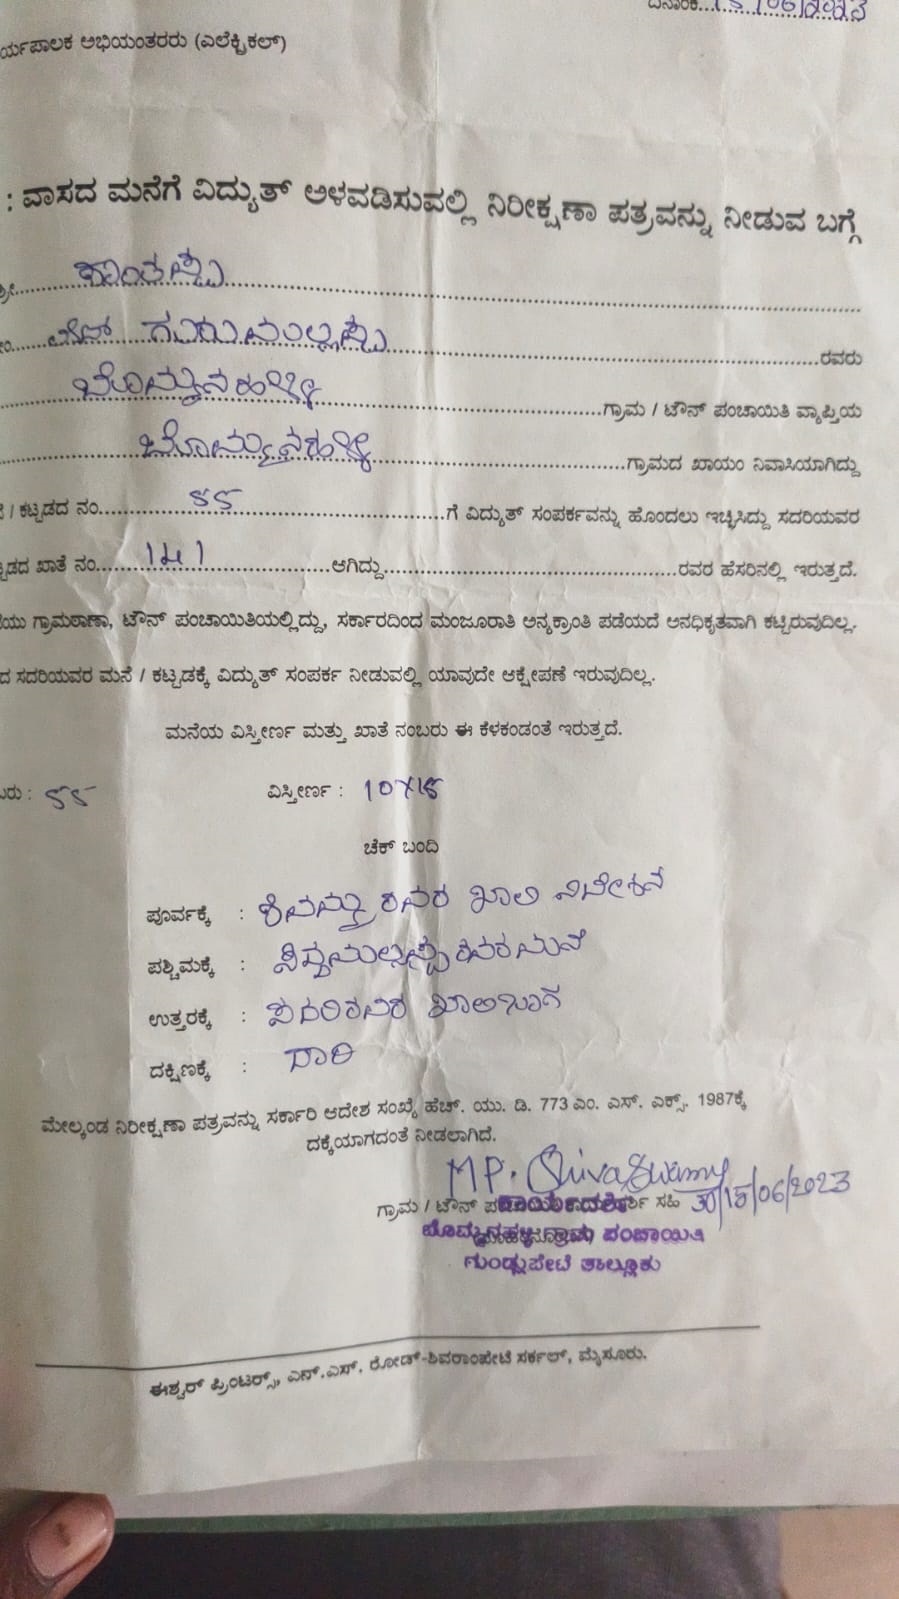 ದಿನಾಂಕ...15/06/2023
ರ್ಯಪಾಲಕ ಅಭಿಯಂತರರು (ಎಲೆಕ್ಟ್ರಿಕಲ್)
: ವಾಸದ ಮನೆಗೆ ವಿದ್ಯುತ್ ಅಳವಡಿಸುವಲ್ಲಿ ನಿರೀಕ್ಷಣಾ ಪತ್ರವನ್ನು ನೀಡುವ ಬಗ್ಗೆ
ಶ್ರೀ.......ಶಾಂತಪ್ಪ
ಬಿನ್ ಗುರುಮಲ್ಲಪ್ಪ ರವರು
ಬೊಮ್ಮನಹಳ್ಳಿ ಗ್ರಾಮ / ಟೌನ್ ಪಂಚಾಯಿತಿ ವ್ಯಾಪ್ತಿಯ
ಬೊಮ್ಮನಹಳ್ಳಿ ಗ್ರಾಮದ ಖಾಯಂ ನಿವಾಸಿಯಾಗಿದ್ದು
/ ಕಟ್ಟಡದ ನಂ....55....ಗೆ ವಿದ್ಯುತ್ ಸಂಪರ್ಕವನ್ನು ಹೊಂದಲು ಇಚ್ಛಿಸಿದ್ದು ಸದರಿಯವರ
ಟ್ಟಡದ ಖಾತೆ ನಂ....141....ಆಗಿದ್ದು........ರವರ ಹೆಸರಿನಲ್ಲಿ ಇರುತ್ತದೆ.
ಯು ಗ್ರಾಮಠಾಣಾ, ಟೌನ್ ಪಂಚಾಯಿತಿಯಲ್ಲಿದ್ದು, ಸರ್ಕಾರದಿಂದ ಮಂಜೂರಾತಿ ಅನ್ಯಕ್ರಾಂತಿ ಪಡೆಯದೆ ಅನಧಿಕೃತವಾಗಿ ಕಟ್ಟಿರುವುದಿಲ್ಲ.
ದ ಸದರಿಯವರ ಮನೆ / ಕಟ್ಟಡಕ್ಕೆ ವಿದ್ಯುತ್ ಸಂಪರ್ಕ ನೀಡುವಲ್ಲಿ ಯಾವುದೇ ಆಕ್ಷೇಪಣೆ ಇರುವುದಿಲ್ಲ.
ಮನೆಯ ವಿಸ್ತೀರ್ಣ ಮತ್ತು ಖಾತೆ ನಂಬರು ಈ ಕೆಳಕಂಡಂತೆ ಇರುತ್ತದೆ.
ಬರು : 55 ವಿಸ್ತೀರ್ಣ : 10X15
ಚೆಕ್ ಬಂದಿ
ಪೂರ್ವಕ್ಕೆ : ಶಿವಮ್ಮ ರವರ ಖಾಲಿ ನಿವೇಶನ
ಪಶ್ಚಿಮಕ್ಕೆ : ಸಿದ್ದಮಲ್ಲಪ್ಪ ರವರ ಮನೆ
ಉತ್ತರಕ್ಕೆ : ಸದರಿರವರ ಖಾಲಿಜಾಗ
ದಕ್ಷಿಣಕ್ಕೆ : ದಾರಿ
ಮೇಲ್ಕಂಡ ನಿರೀಕ್ಷಣಾ ಪತ್ರವನ್ನು ಸರ್ಕಾರಿ ಆದೇಶ ಸಂಖ್ಯೆ ಹೆಚ್. ಯು. ಡಿ. 773 ಎಂ. ಎಸ್. ಎಕ್ಸ್. 1987ಕ್ಕೆ
ದಕ್ಕೆಯಾಗದಂತೆ ನೀಡಲಾಗಿದೆ.
M P. Shiva Swamy
ಗ್ರಾಮ / ಟೌನ್ ಸಹಿ 15/06/2023
ಕಾರ್ಯದರ್ಶಿ
ಬೊಮ್ಮನಹಳ್ಳಿ ಗ್ರಾಮ ಪಂಚಾಯಿತಿ
ಗುಂಡ್ಲುಪೇಟೆ ತಾಲ್ಲೂಕು
ಈಶ್ವರ್ ಪ್ರಿಂಟರ್ಸ್, ಎನ್.ಎಸ್. ರೋಡ್-ಶಿವರಾಂಪೇಟೆ ಸರ್ಕಲ್, ಮೈಸೂರು.